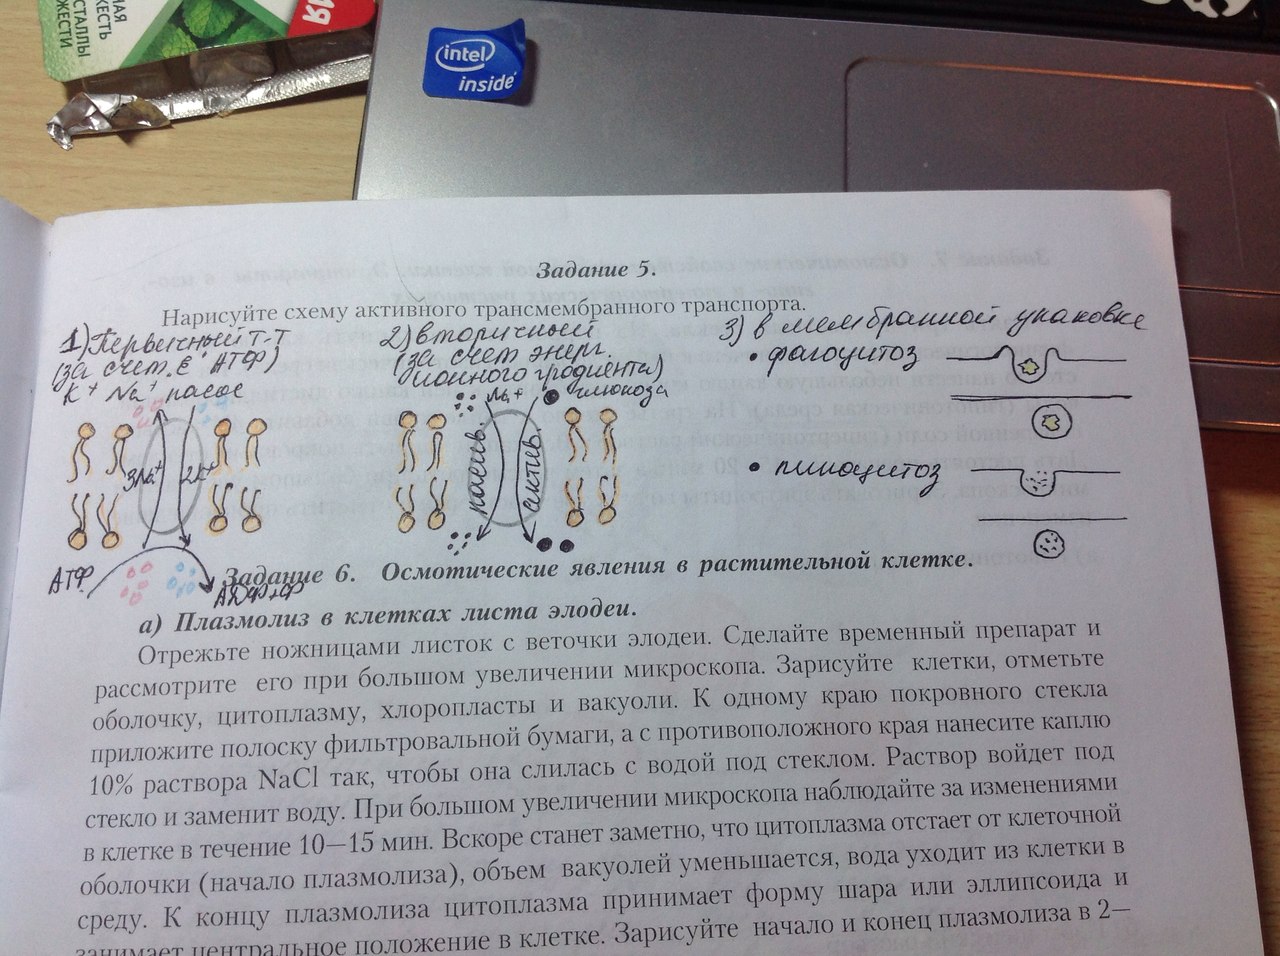 НАЯ
ЖЕСТЬ
СТАЛЛЫ
ЖЕСТИ
intel
inside
Задание 5.
Нарисуйте схему активного трансмембранного транспорта.
1) Первичный т-т
(за счет E АТФ)
K+ Na+ насос
3Na+
2K+
АТФ
АДФ+Ф
2) вторичный
(за счет энерг.
ионного градиента)
Na+
глюкоза
пассив.
актив.
3) в мембранной упаковке
• фагоцитоз
• пиноцитоз
Задание 6. Осмотические явления в растительной клетке.
а) Плазмолиз в клетках листа элодеи.
Отрежьте ножницами листок с веточки элодеи. Сделайте временный препарат и
рассмотрите его при большом увеличении микроскопа. Зарисуйте клетки, отметьте
оболочку, цитоплазму, хлоропласты и вакуоли. К одному краю покровного стекла
приложите полоску фильтровальной бумаги, а с противоположного края нанесите каплю
10% раствора NaCl так, чтобы она слилась с водой под стеклом. Раствор войдет под
стекло и заменит воду. При большом увеличении микроскопа наблюдайте за изменениями
в клетке в течение 10—15 мин. Вскоре станет заметно, что цитоплазма отстает от клеточной
оболочки (начало плазмолиза), объем вакуолей уменьшается, вода уходит из клетки в
среду. К концу плазмолиза цитоплазма принимает форму шара или эллипсоида и
занимает центральное положение в клетке. Зарисуйте начало и конец плазмолиза в 2—